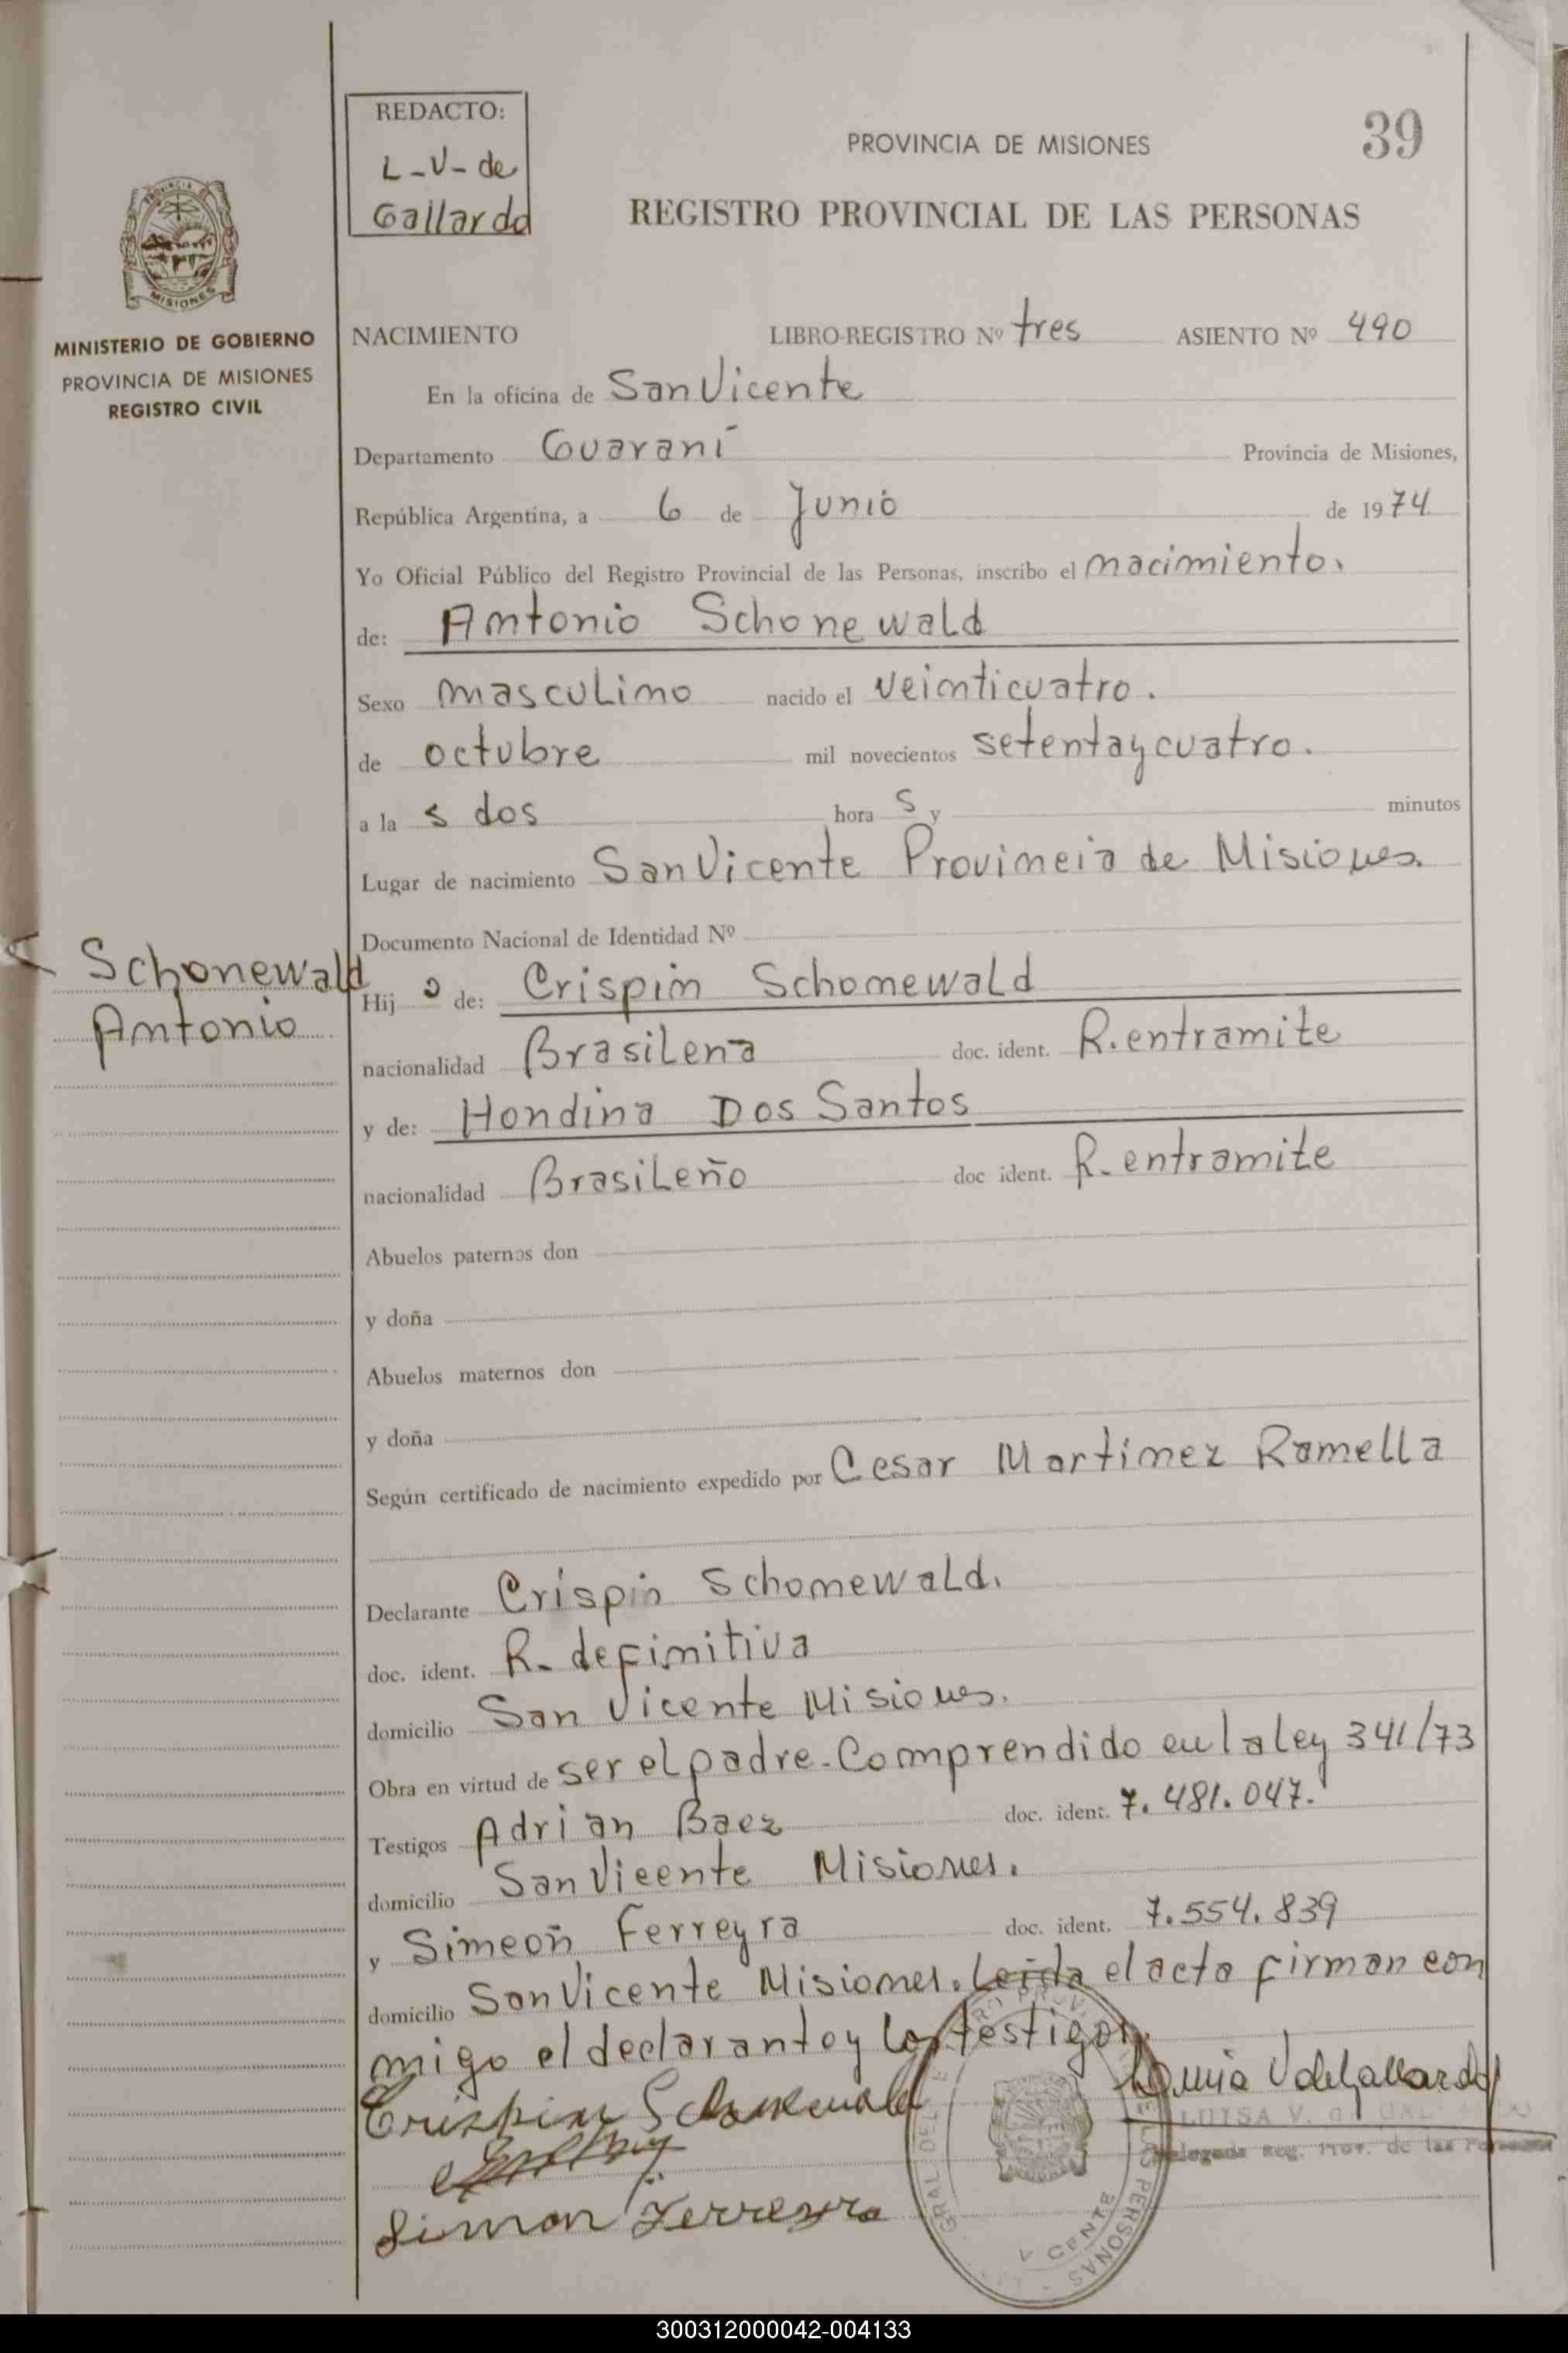 REDACTO:
L-V-de
Gallardo
PROVINCIA DE MISIONES
39
REGISTRO PROVINCIAL DE LAS PERSONAS
MISIONES
MINISTERIO DE GOBIERNO
PROVINCIA DE MISIONES
REGISTRO CIVIL
NACIMIENTO LIBRO-REGISTRO Nº tres ASIENTO Nº 490
En la oficina de San Vicente
Departamento Guaraní Provincia de Misiones,
República Argentina, a 6 de Junio de 1974
Yo Oficial Público del Registro Provincial de las Personas, inscribo el nacimiento.
de: Antonio Schonewald
Sexo masculino nacido el veinticuatro.
de octubre mil novecientos setenta y cuatro.
a la s dos hora s y minutos
Lugar de nacimiento San Vicente Provincia de Misiones.
Documento Nacional de Identidad Nº
Schonewald
Antonio
Hij o de: Crispin Schonewald
nacionalidad Brasilena doc. ident. R. entramite
y de: Hondina Dos Santos
nacionalidad Brasileño doc ident. R. entramite
Abuelos paternos don
y doña
Abuelos maternos don
y doña
Según certificado de nacimiento expedido por Cesar Martinez Ramella
Declarante Crispin Schonewald.
doc. ident. R. definitiva
domicilio San Vicente Misiones.
Obra en virtud de ser el padre. Comprendido en la ley 341/73
Testigos Adrian Baez doc. ident. 7.481.047.
domicilio San Vicente Misiones.
y Simeon Ferreyra doc. ident. 7.554.839
domicilio San Vicente Misiones. Leida el acta firman con
migo el declarante y los testigos.
Crispin Schonewald
LUISA V. DE GALLARDO
Delegada Reg. Prov. de las Personas
Simon Ferreyra
300312000042-004133